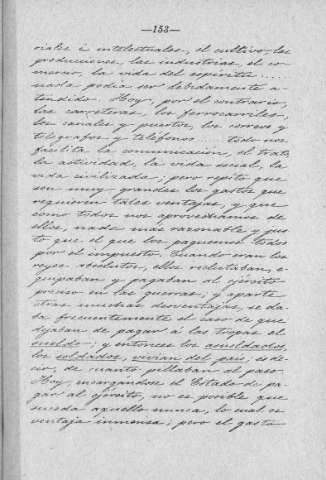 —153—
riales é intelectuales, el cultivo, las
producciones, las industrias, el co-
mercio, la vida del espíritu....
nada podía ser debidamente a-
tendido. Hoy, por el contrario,
las carreteras, los ferrocarriles,
los canales y puertos, los correos y
telégrafos y teléfonos.... todo nos
facilita la comunicación, el trato,
la actividad, la vida social, la
vida civilizada; pero repito que
son muy grandes los gastos que
requieren tales ventajas, y que
como todos nos aprovechamos de
ellas, nada más razonable y jus-
to que el que los paguemos todos
por el impuesto. Cuando eran los
reyes absolutos, ellos reclutaban, e-
quipaban y pagaban al ejército
preciso en las guerras; y aparte
otras muchas desventajas, se da-
ba frecuentemente el caso de que
dejaban de pagar á las tropas el
sueldo; y entonces los asoldados,
los soldados, vivían del país, es de-
cir, de cuanto pillaban al paso.
Hoy, encargándose el Estado de pa-
gar al ejército, no es posible que
suceda aquello nunca, lo cual es
ventaja inmensa; pero el gasto